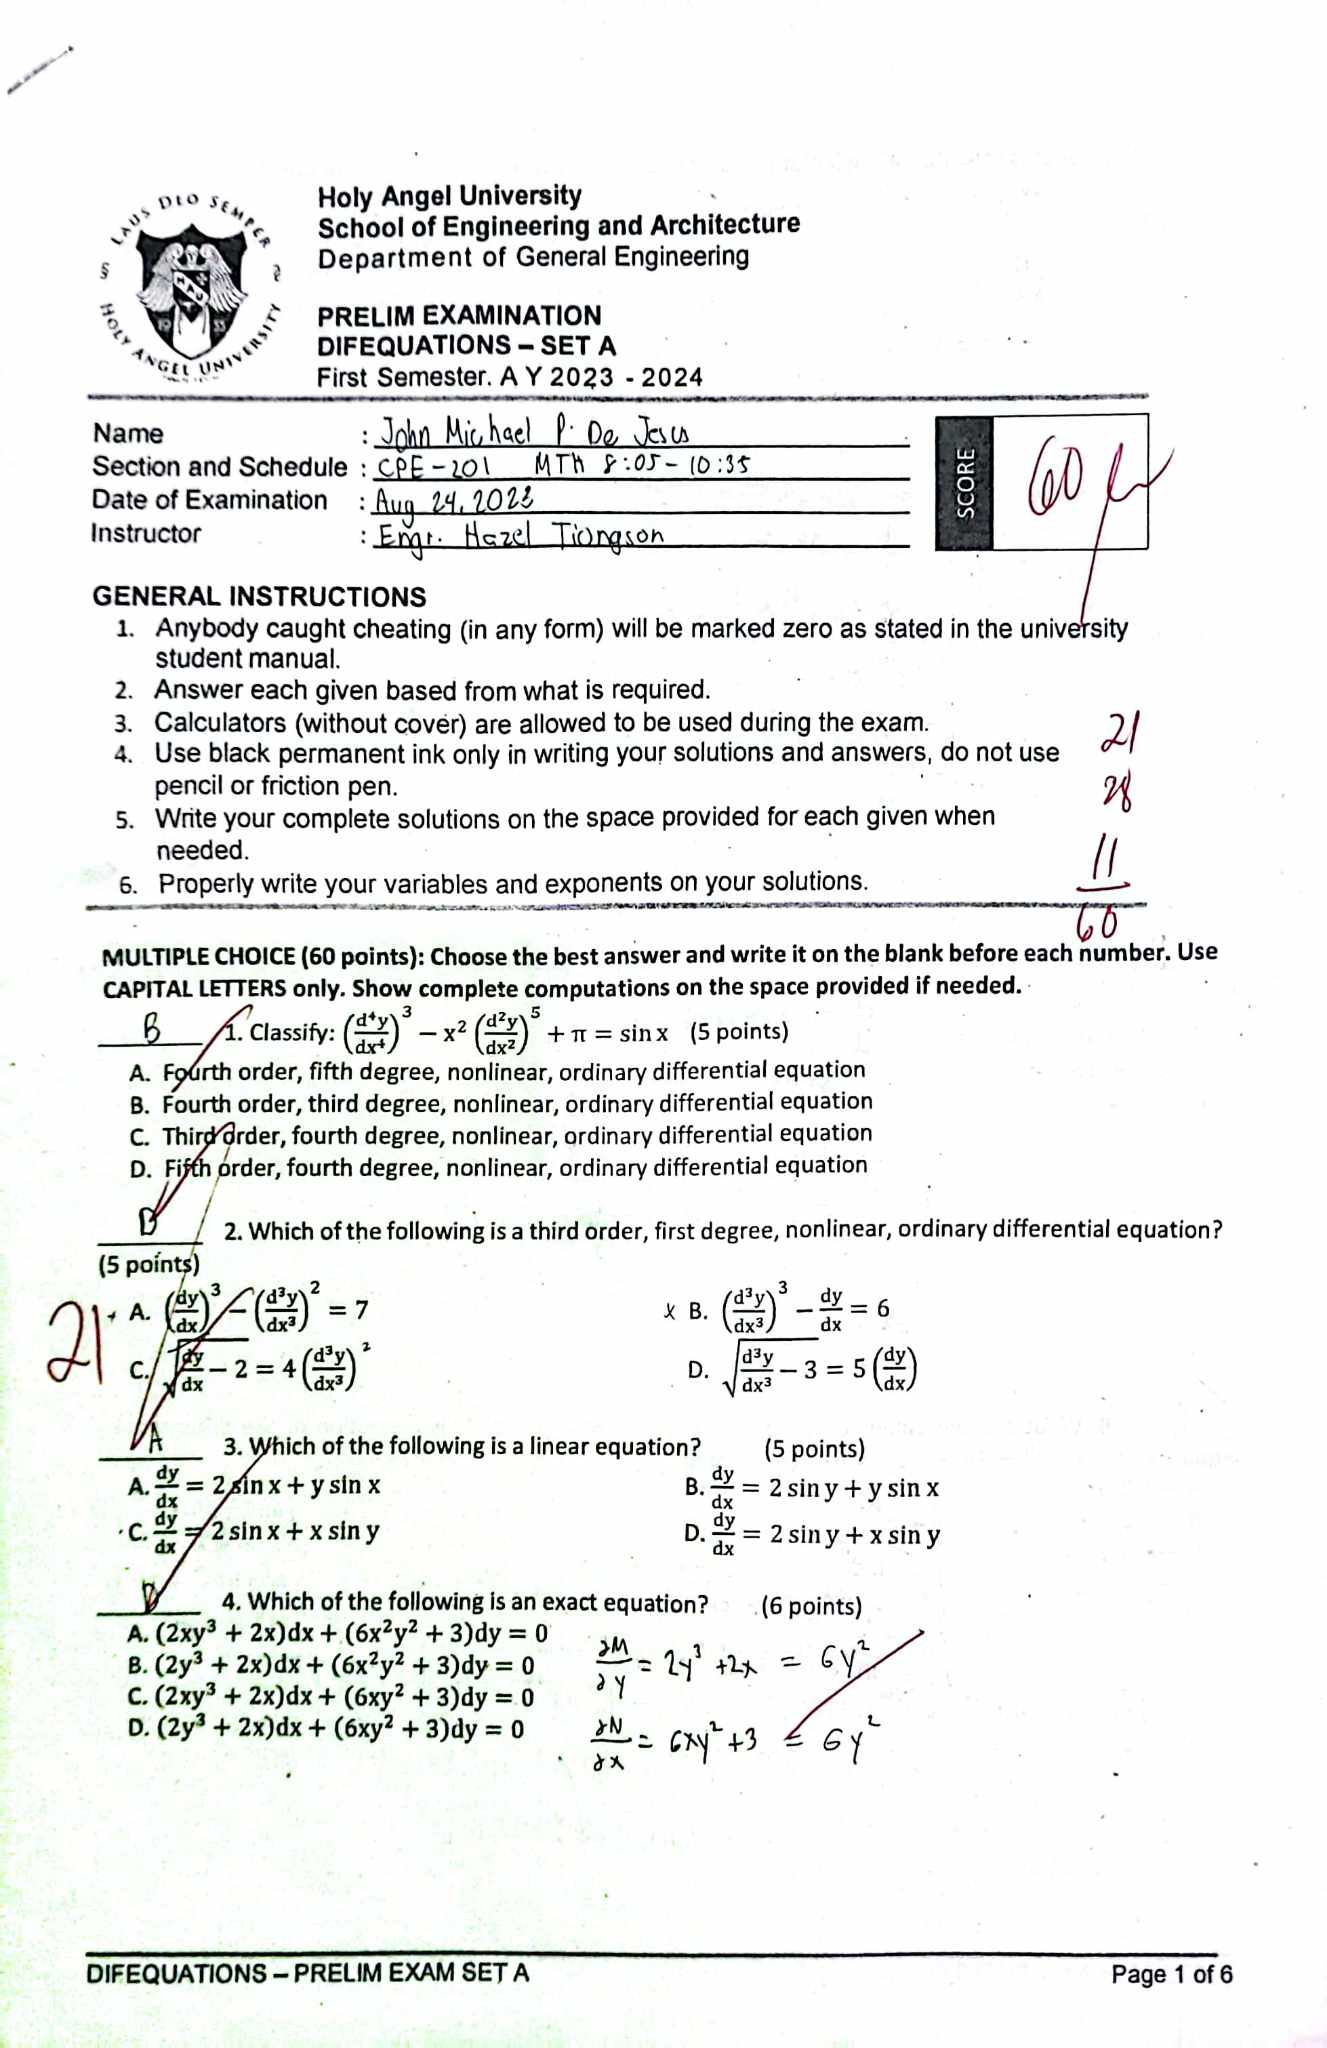 LAUS DEO SEMPER
HOLY ANGEL UNIVERSITY
HAU
1933
Holy Angel University
School of Engineering and Architecture
Department of General Engineering
PRELIM EXAMINATION
DIFEQUATIONS – SET A
First Semester. A Y 2023 - 2024
Name : John Michael P. De Jesus
Section and Schedule : CPE-201 MTH 8:05-10:35
Date of Examination : Aug 24, 2023
Instructor : Engr. Hazel Tiongson
SCORE
60
GENERAL INSTRUCTIONS
1. Anybody caught cheating (in any form) will be marked zero as stated in the university
student manual.
2. Answer each given based from what is required.
3. Calculators (without cover) are allowed to be used during the exam.
4. Use black permanent ink only in writing your solutions and answers, do not use
pencil or friction pen.
5. Write your complete solutions on the space provided for each given when
needed.
6. Properly write your variables and exponents on your solutions.
21
28
11
60
MULTIPLE CHOICE (60 points): Choose the best answer and write it on the blank before each number. Use
CAPITAL LETTERS only. Show complete computations on the space provided if needed.
B 1. Classify: (d⁴y/dx⁴)³ − x² (d²y/dx²)⁵ + π = sin x (5 points)
A. Fourth order, fifth degree, nonlinear, ordinary differential equation
B. Fourth order, third degree, nonlinear, ordinary differential equation
C. Third order, fourth degree, nonlinear, ordinary differential equation
D. Fifth order, fourth degree, nonlinear, ordinary differential equation
D 2. Which of the following is a third order, first degree, nonlinear, ordinary differential equation?
(5 points)
21
A. (dy/dx)³ − (d³y/dx³)² = 7
x B. (d³y/dx³)³ − dy/dx = 6
C. √(dy/dx) − 2 = 4 (d³y/dx³)²
D. √(d³y/dx³ − 3) = 5 (dy/dx)
A 3. Which of the following is a linear equation? (5 points)
A. dy/dx = 2 sin x + y sin x
B. dy/dx = 2 sin y + y sin x
C. dy/dx = 2 sin x + x sin y
D. dy/dx = 2 sin y + x sin y
D 4. Which of the following is an exact equation? (6 points)
A. (2xy³ + 2x)dx + (6x²y² + 3)dy = 0
B. (2y³ + 2x)dx + (6x²y² + 3)dy = 0
C. (2xy³ + 2x)dx + (6xy² + 3)dy = 0
D. (2y³ + 2x)dx + (6xy² + 3)dy = 0
∂M/∂y = 2y³ + 2x = 6y²
∂N/∂x = 6xy² + 3 = 6y²
DIFEQUATIONS – PRELIM EXAM SET A
Page 1 of 6